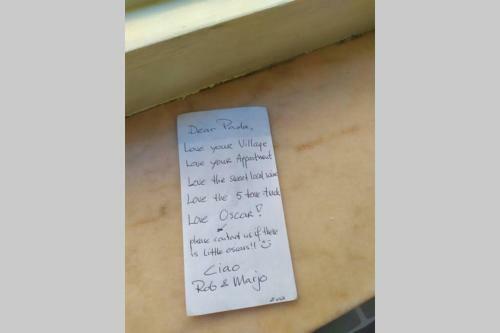 Dear Paola,
Love your Village
Love your Appartment
Love the sweet local wine
Love the 5 tone truck
Love Oscar!
please contact us if there
is little oscars!! ☺
Ciao
Rob & Marjo